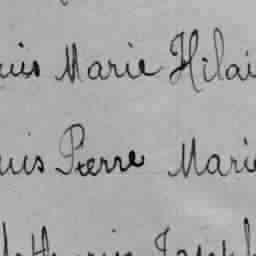 uis Marie Hilai
uis Pierre Marie